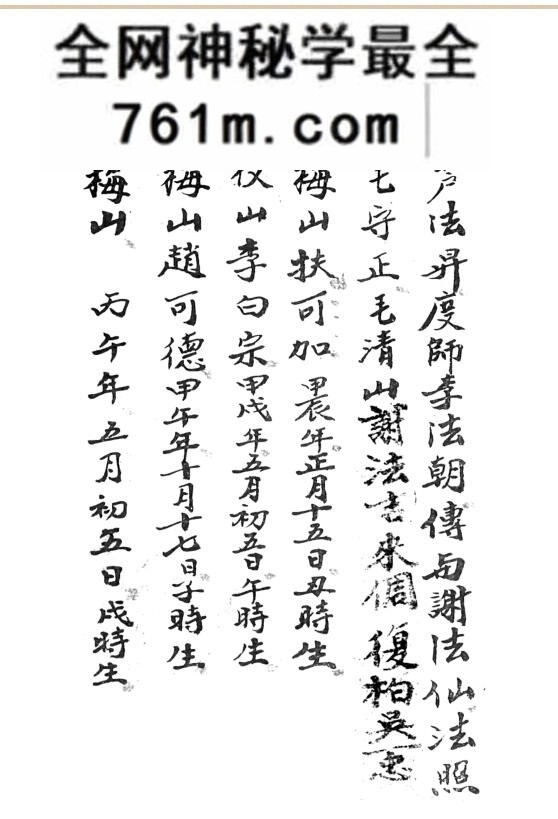 全网神秘学最全
761m.com
法昇度師李法朝傳与謝法仙法照
七守正毛清山謝法 來個復柏吳 惠
梅山扶可加 甲辰年正月十五日丑時生
仪山李白宗甲戌年五月初五日午時生
梅山趙可德甲午年十月十七日子時生
梅山 丙午年五月初五日戌時生